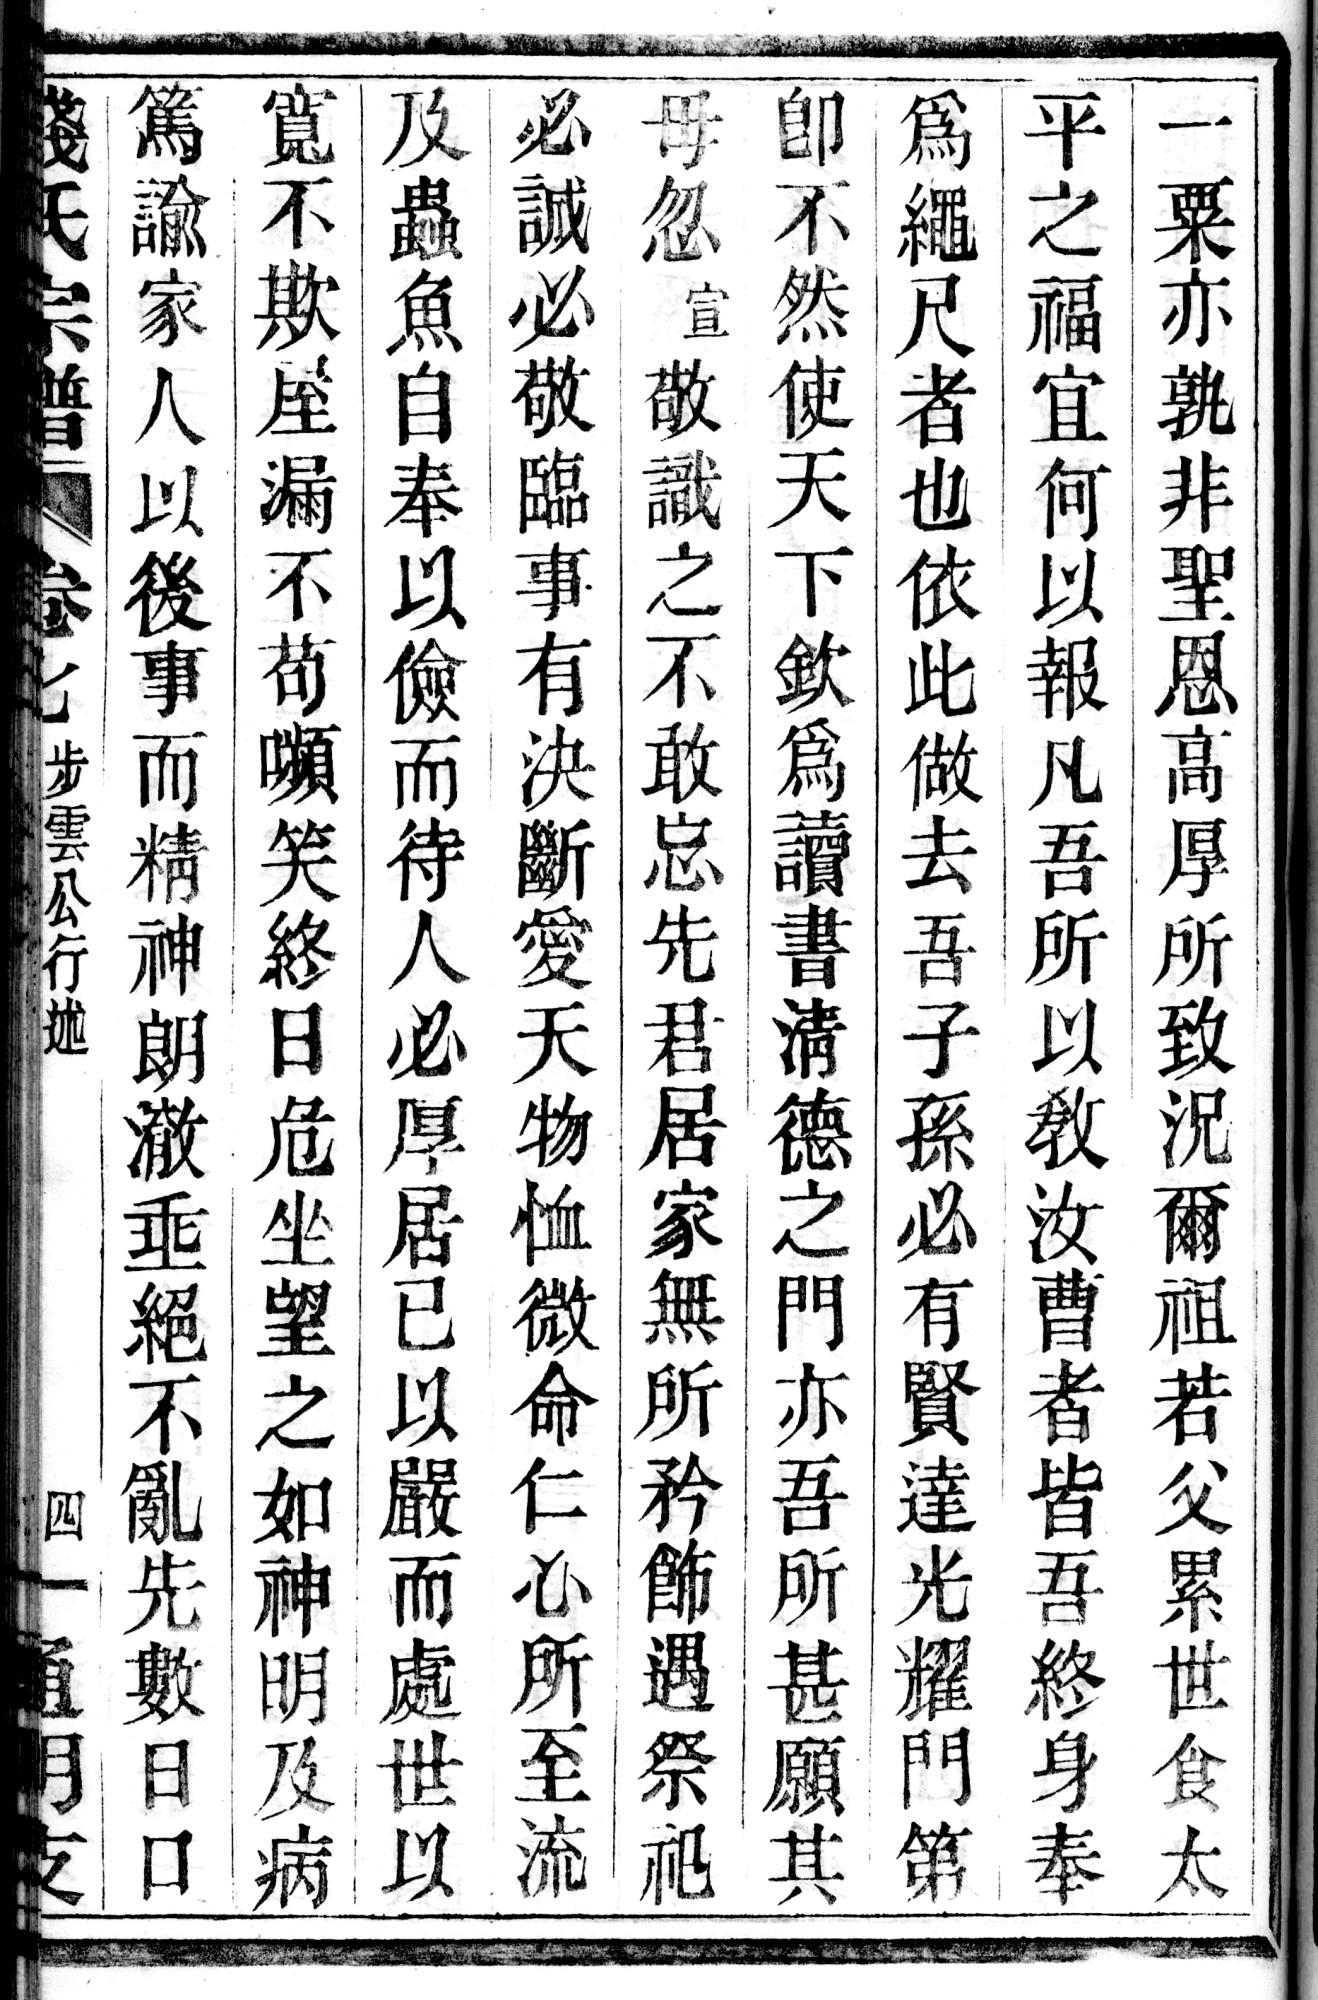 一粟亦孰非聖恩高厚所致況爾祖若父累世食太
平之福宜何以報凡吾所以敎汝曹者皆吾終身奉
爲繩尺者也依此做去吾子孫必有賢達光耀門第
卽不然使天下欽爲讀書淸德之門亦吾所甚願其
毋忽宣敬識之不敢忘先君居家無所矜飾遇祭祀
必誠必敬臨事有決斷愛天物恤微命仁心所至流
及蟲魚自奉以儉而待人必厚居已以嚴而處世以
寬不欺屋漏不苟嚬笑終日危坐望之如神明及病
篤諭家人以後事而精神朗澈垂絕不亂先數日口
錢氏宗譜 卷七 步雲公行述 四一 通明支